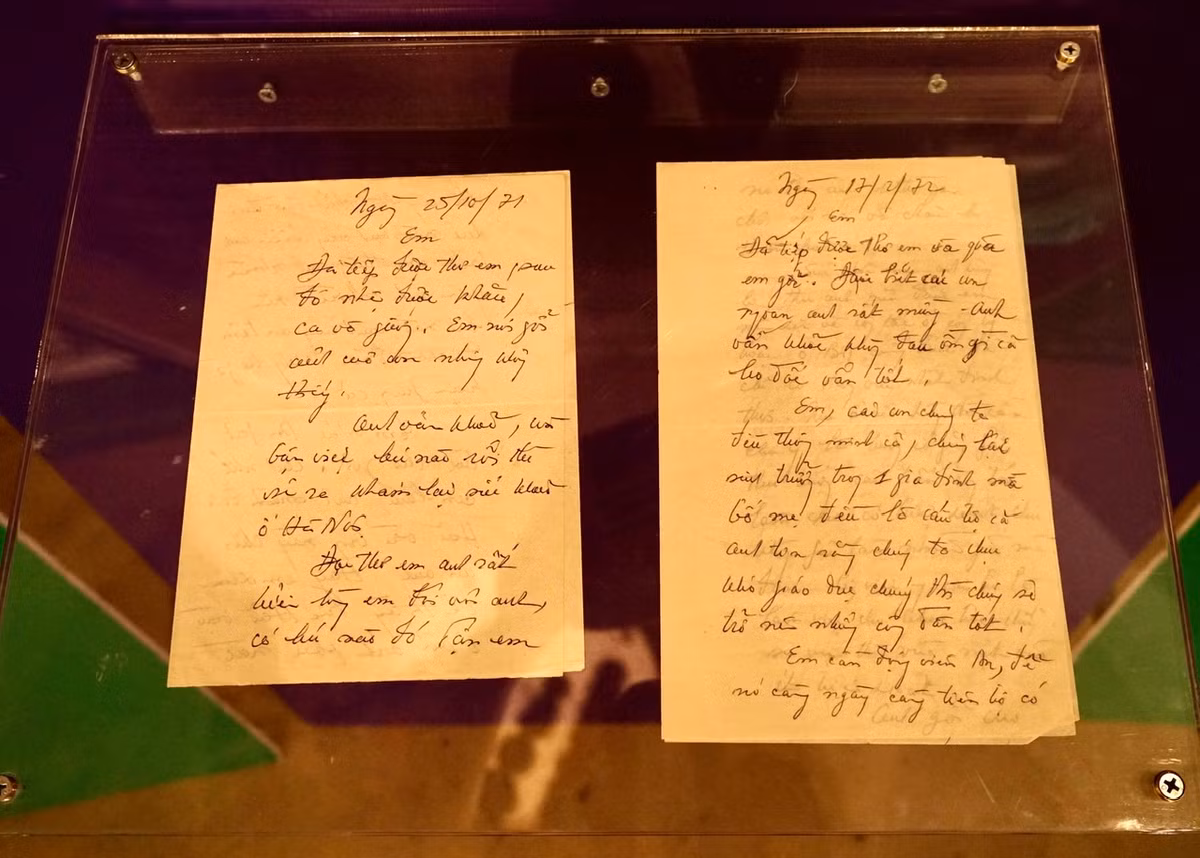 Ngày 25/10/71
Em
Đã tiếp được thơ em, sau
đó nhận được khăn,
ca vô giường. Em nói gởi
anh cuốn nhưng không
thấy.
Anh vẫn khoẻ, và
bận việc lúc nào rồi thì
sẽ ra khám lại sức khoẻ
ở Hà Nội.
Đọc thơ em anh rất
hiểu lòng em đối với anh,
có lúc nào đó em
Ngày 17/2/72
Em
Đã tiếp được thơ em và quà
em gởi. Được biết các con
ngoan anh rất mừng. Anh
vẫn khoẻ không đau ốm gì cả
lao đốc vẫn tốt.
Em, các con chúng ta
đều thông minh cả, chúng lại
sinh trưởng trong 1 gia đình mà
bố mẹ đều là cán bộ cả
anh tin rằng chúng ta chịu
khó giáo dục chúng thì chúng sẽ
trở nên những công dân tốt.
Em cần động viên An, để
nó càng ngày càng tiến bộ có